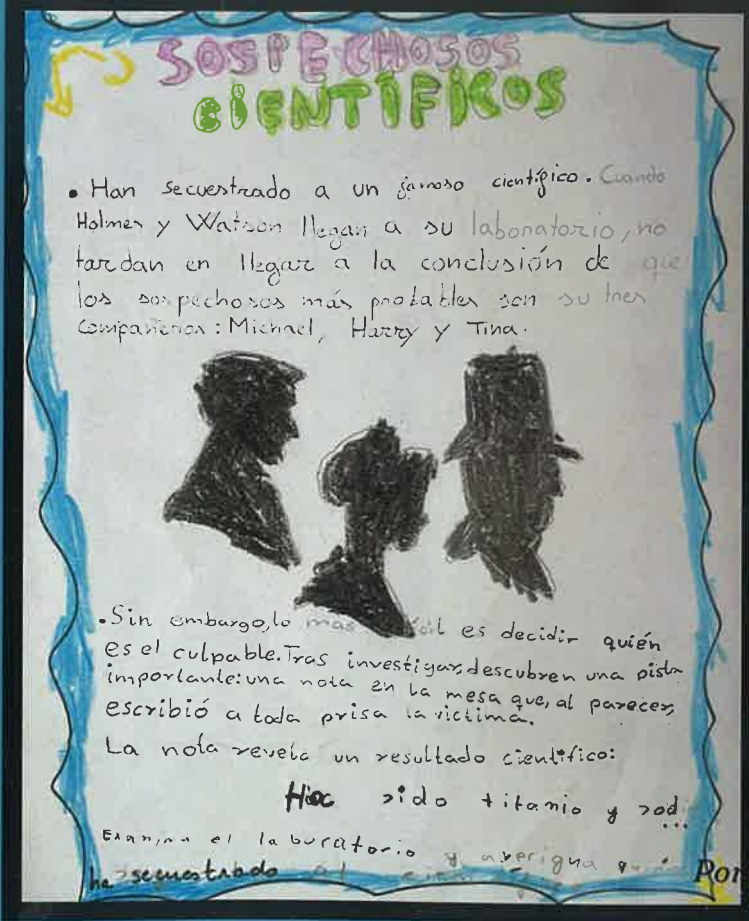 SOSPECHOSOS
CIENTÍFICOS
• Han secuestrado a un famoso científico. Cuando
Holmes y Watson llegan a su laboratorio, no
tardan en llegar a la conclusión de que
los sospechosos más probables son su tres
compañeros: Michael, Harry y Tina.
• Sin embargo, lo mas es decidir quién
es el culpable. Tras investigar, descubren una pista
importante: una nota en la mesa que, al parecer,
escribió a toda prisa la victima.
La nota revela un resultado cientifico:
sido titanio y sod...
Examina el laboratorio y averigua
ha secuestrado al
Por